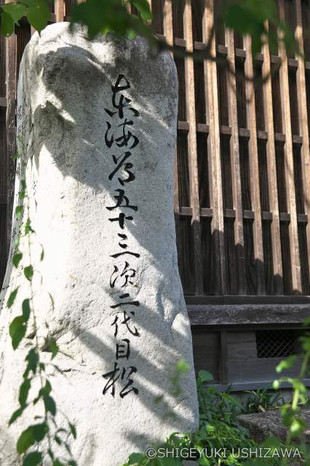 東海道五十三次二代目松
©SHIGEYUKI USHIZAWA